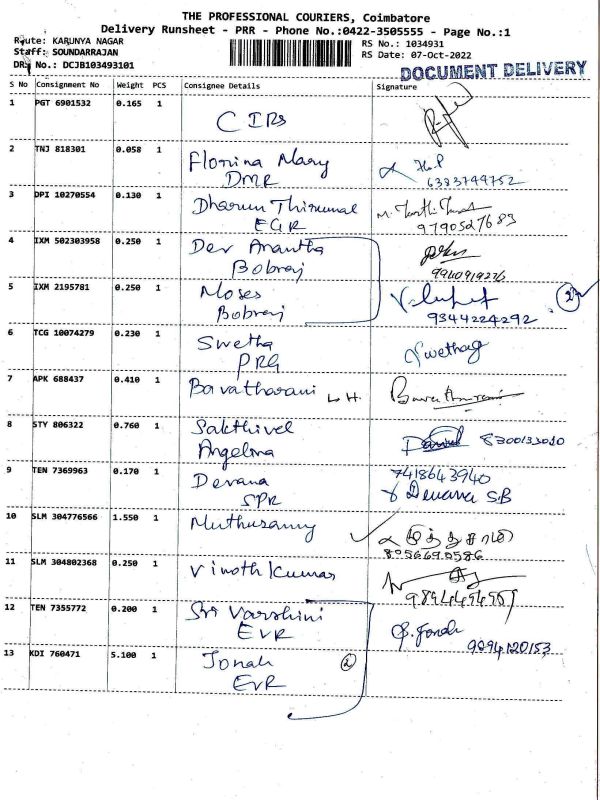 THE PROFESSIONAL COURIERS, Coimbatore
Delivery Runsheet - PRR - Phone No.:0422-3505555 - Page No.:1
Route: KARUNYA NAGAR
RS No.: 1034931
Staff: SOUNDARRAJAN
RS Date: 07-Oct-2022
DRS No.: DCJB103493101
DOCUMENT DELIVERY
S No Consignment No Weight PCS Consignee Details Signature
1 PGT 6901532 0.165 1
C IRs
2 TNJ 818301 0.058 1
Florina Mary
DMR
6383744752
3 DPI 10270554 0.130 1
Dharun Thirumal
EGR
9790527683
4 IXM 502303958 0.250 1
Dev Anantha
Bobraj
9940919276
5 IXM 2195781 0.250 1
Moses
Bobraj
9344224292
2
6 TCG 10074279 0.230 1
Swetha
PRG
Swethag
7 APK 688437 0.410 1
Bavatharani L.H.
8 STY 806322 0.760 1
Sakthivel
Angelina
8300133010
9 TEN 7369963 0.170 1
Devana
SPR
7418643940
Devana S.B
10 SLM 304776566 1.550 1
Muthusamy
முத்துசாமி
8056690586
11 SLM 304802368 0.250 1
Vinoth Kumar
12 TEN 7355772 0.200 1
Sri Varshini
EVR
J. Jonah
9094120153
13 KDI 760471 5.100 1
Jonah
EVR
2